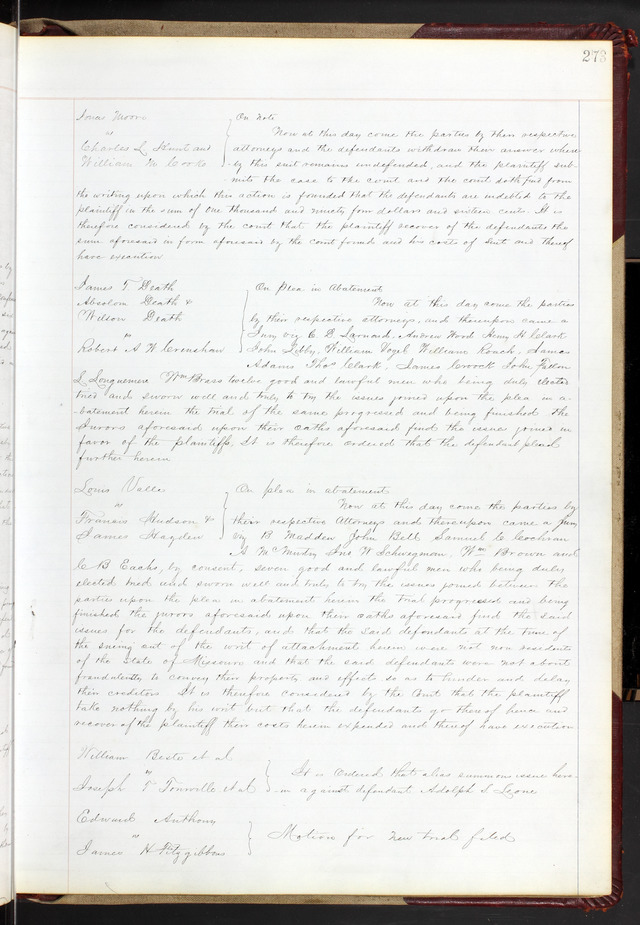 273
Jonas Moore
vs
Charles L Hunt and
William M Cooke
On Note
Now at this day come the parties by their respective
attorneys and the defendants withdraw their answer where
by this suit remains undefended, and the plaintiff sub
mits the case to the court and the court doth find from
the writing upon which this action is founded that the defendants are indebted to the
plaintiff in the sum of One thousand and ninety four dollars and sixteen cents. It is
therefore considered by the court that the plaintiff recover of the defendants the
sum aforesaid in form aforesaid by the court found and his costs of suit and thereof
have execution
James T Death
Absolom Death &
Wilson Death
vs
Robert A W Crenshaw
On Plea in Abatement
Now at this day come the parties
by their respective attorneys, and thereupon came a
Jury viz C. D. Larnard, Andrew Wood Henry H Clark
John Libby, William Vogel William Ronch, James
Adams Thos Clark, James Croock John Fallen
L Longuemere Wm Brass twelve good and lawful men who being duly elected
tried and sworn well and truly to try the issues joined upon the plea in a-
batement herein the trial of the same progressed and being finished the
Jurors aforesaid upon their oaths aforesaid find the issues joined in
favor of the plaintiffs, It is therefore ordered that the defendant plead
further herein
Louis Valle
vs
Francis Hudson &
James Hayden
On plea in abatement
Now at this day come the parties by
their respective Attorneys and thereupon came a Jury
viz B Madden John Bell Samuel C Cochran
A McMurtry Jno W Schwegman, Wm Brown and
C B Eachs, by consent, seven good and lawful men who being duly
elected tried and sworn well and truly to try the issues joined between the
parties upon the plea in abatement herein the trial progressed and being
finished the jurors aforesaid upon their oaths aforesaid find the said
issues for the defendants, and that the said defendants at the time of
the suing out of the writ of attachment herein were not non residents
of the State of Missouri and that the said defendants were not about
fraudulently to convey their property and effects so as to hinder and delay
their creditors It is therefore considered by the Court that the plaintiff
take nothing by his writ but that the defendants go thereof hence and
recover of the plaintiff their costs herein expended and thereof have execution
William Besto et al
vs
Joseph T Tourville et al
It is Ordered that alias summons issue here-
in against defendant Adolph S Leone
Edward Anthony
vs
James H Fitzgibbons
Motion for new trial filed